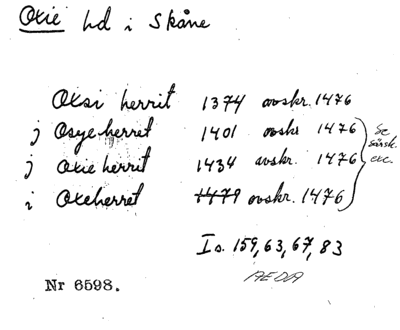 Oxie hd i Skåne
Oksi herrit 1374 avskr. 1476
j Osyeherret 1401 avskr 1476
j Oxie herrit 1434 avskr. 1476
i Oxeherret 1479 avskr. 1476
Se särsk. exc.
I s. 159, 63, 67, 83
AEDA
Nr 6598.